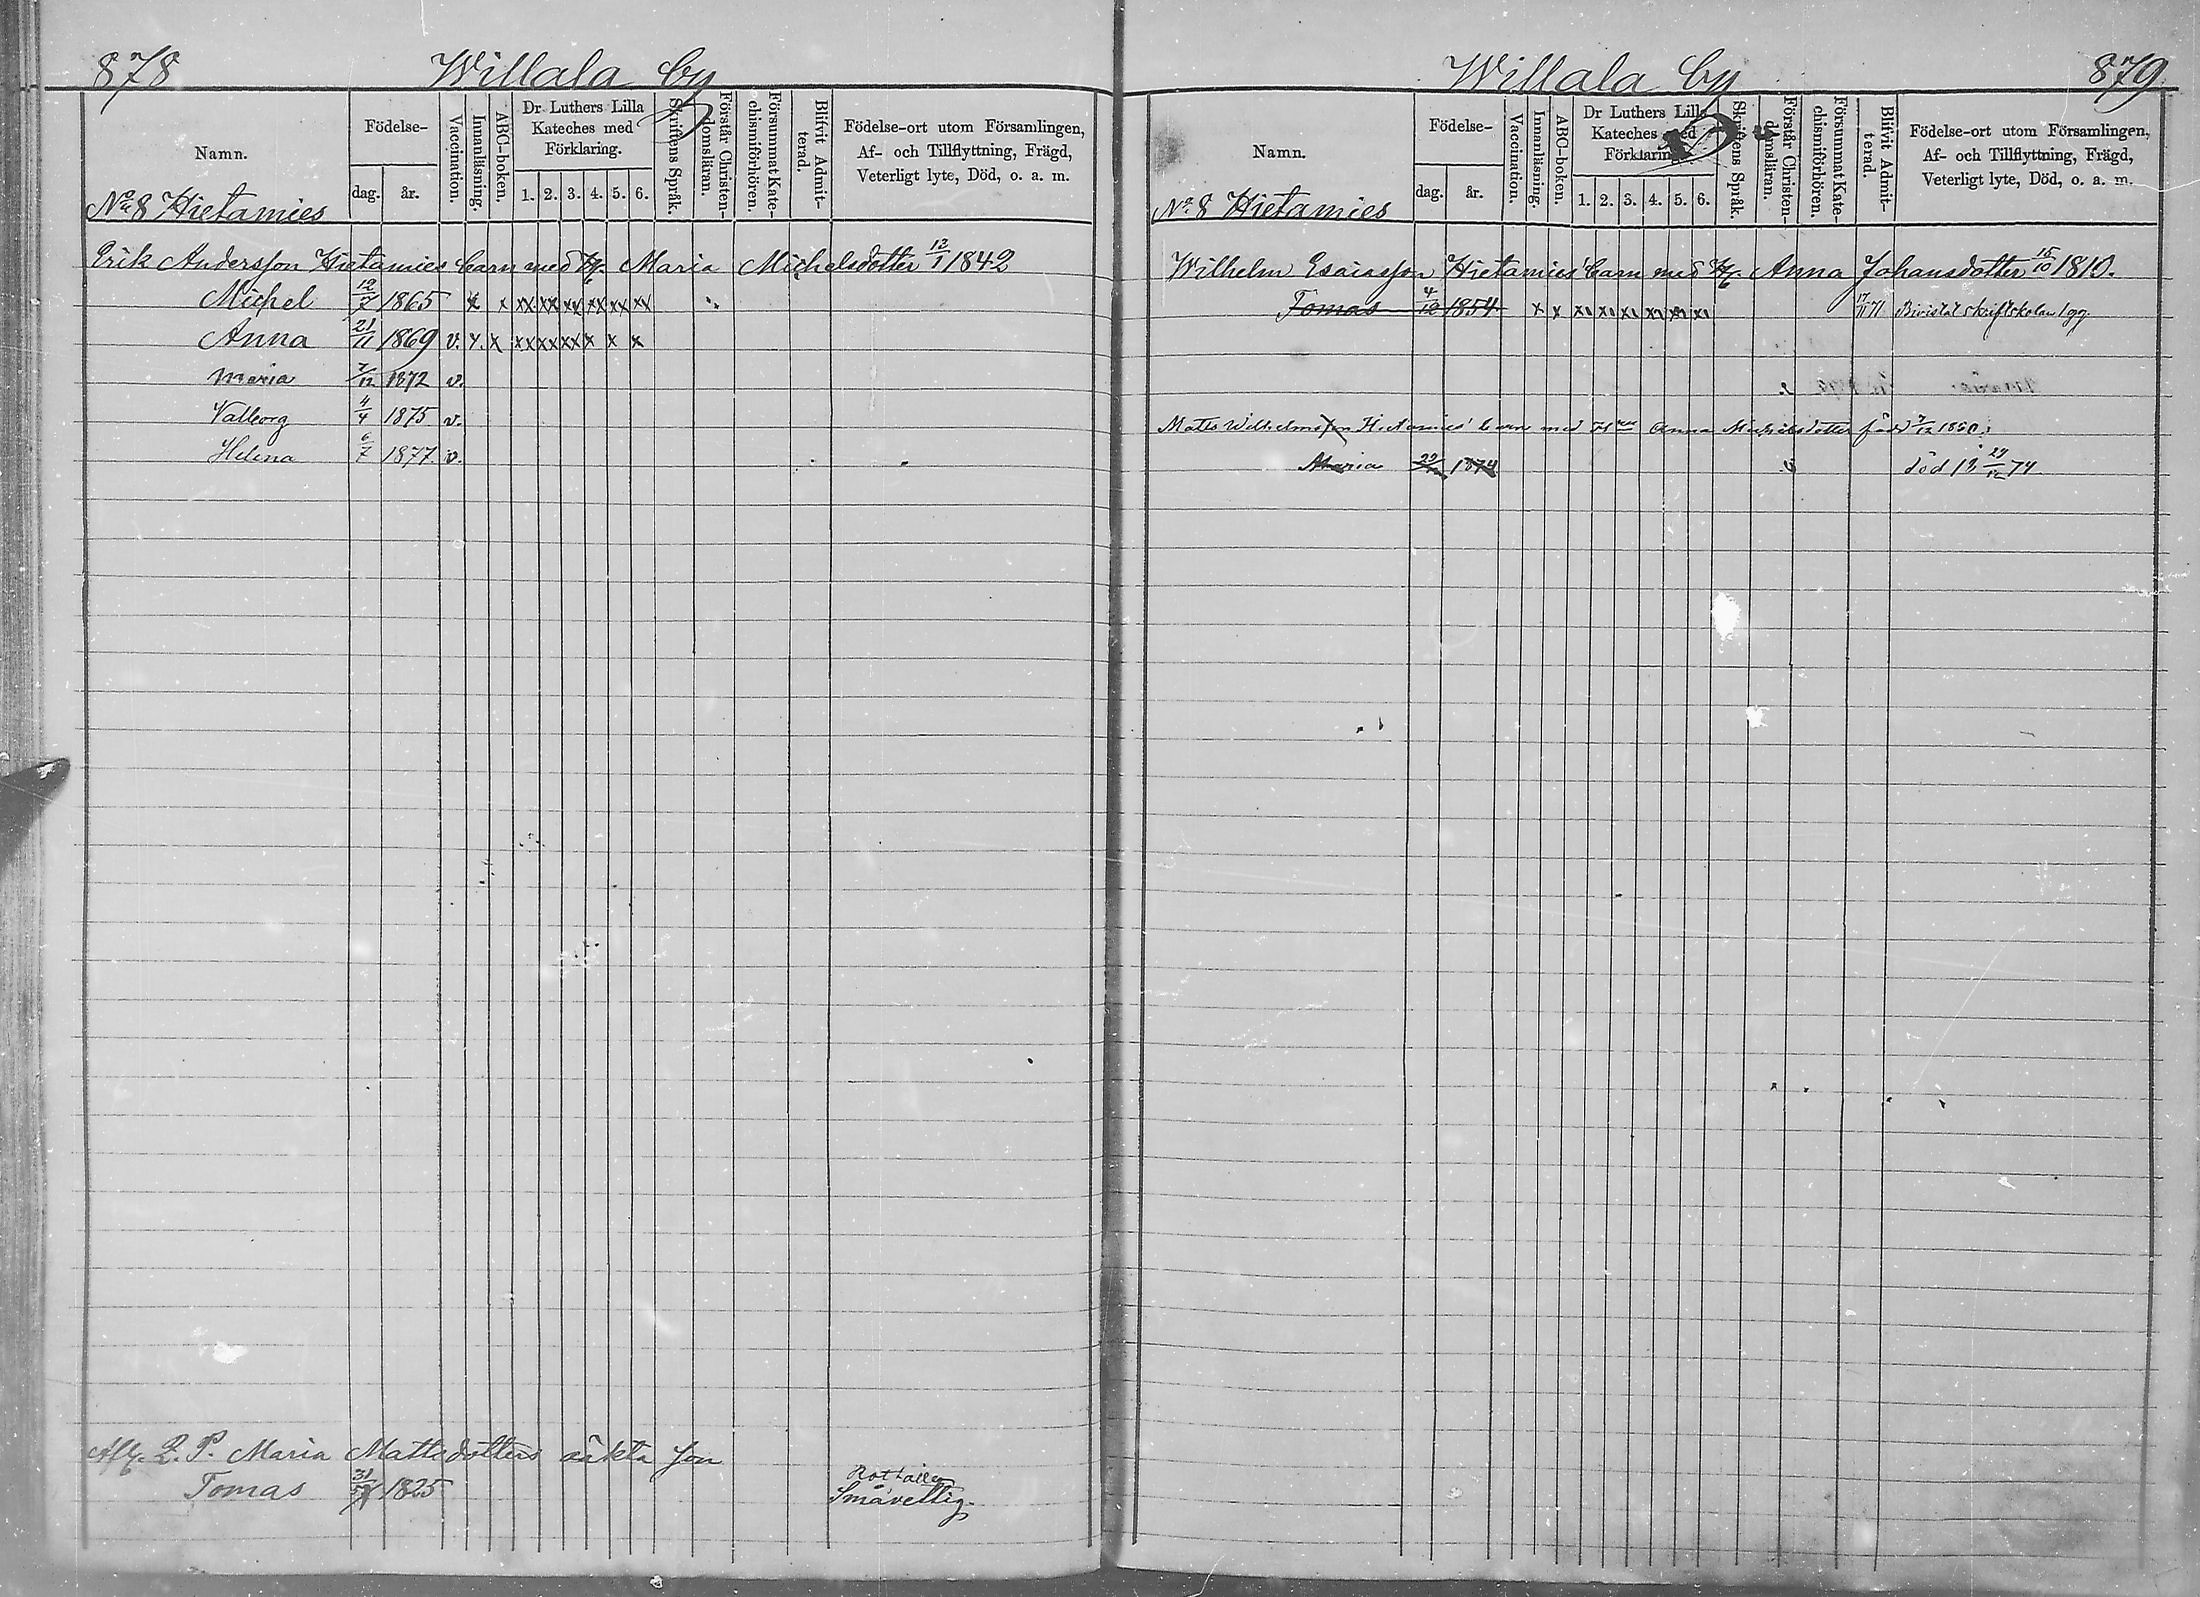 878 Willala by
Namn. Födelse- dag. år. Vaccination. Innanläsning. ABC-boken. Dr Luthers Lilla Kateches med Förklaring. 1. 2. 3. 4. 5. 6. Skriftens Språk. Förstår Christendomsläran. Försummat Katechismiförhören. Blifvit Admitterad. Födelse-ort utom Församlingen, Af- och Tillflyttning, Frägd, Veterligt lyte, Död, o. a. m.
No 8 Hietamies
Erik Andersson Hietamies barn med H. Maria Michelsdotter 13/1 1842
Michel 12/7 1865 x x xx xx xx xx xx xx
Anna 21/11 1869 v. x. x xx xx xx x x x
Maria 7/12 1872 v.
Valborg 4/4 1875 v.
Helena 6/7 1877. v.
Afl. Q. P. Maria Mattsdotters oäkta son
Tomas 1825 Småvettig.
Willala by 879
Namn. Födelse- dag. år. Vaccination. Innanläsning. ABC-boken. Dr Luthers Lilla Kateches med Förklaring. 1. 2. 3. 4. 5. 6. Skriftens Språk. Förstår Christendomsläran. Försummat Katechismiförhören. Blifvit Admitterad. Födelse-ort utom Församlingen, Af- och Tillflyttning, Frägd, Veterligt lyte, Död, o. a. m.
No 8 Hietamies
Wilhelm Esaiasson Hietamies' barn med H. Anna Johansdotter 15/10 1810.
Tomas 4/12 1854 x x xx xx xx xx xx xx 17/11 71 Bivistat skriftskolan 1 gg.
Matts Wilhelmsson Hietamies' barn med Anna Michelsdotter född 7/12 1850.
Maria 29/12 1874 död 29/12 74